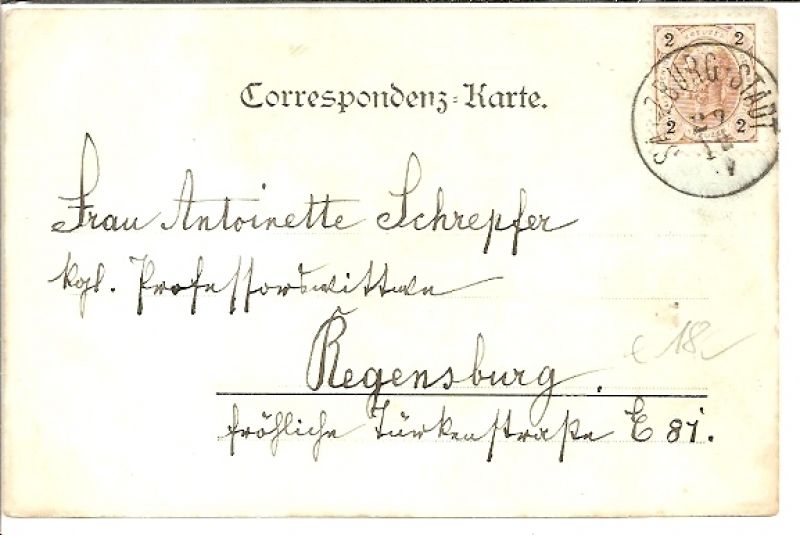 2 2
SALZBURG-STADT
2 2
Correspondenz-Karte.
Frau Antoinette Schrepfer
kgl. Professorswittwe
Regensburg.
fröhliche Türkenstraße E 81.